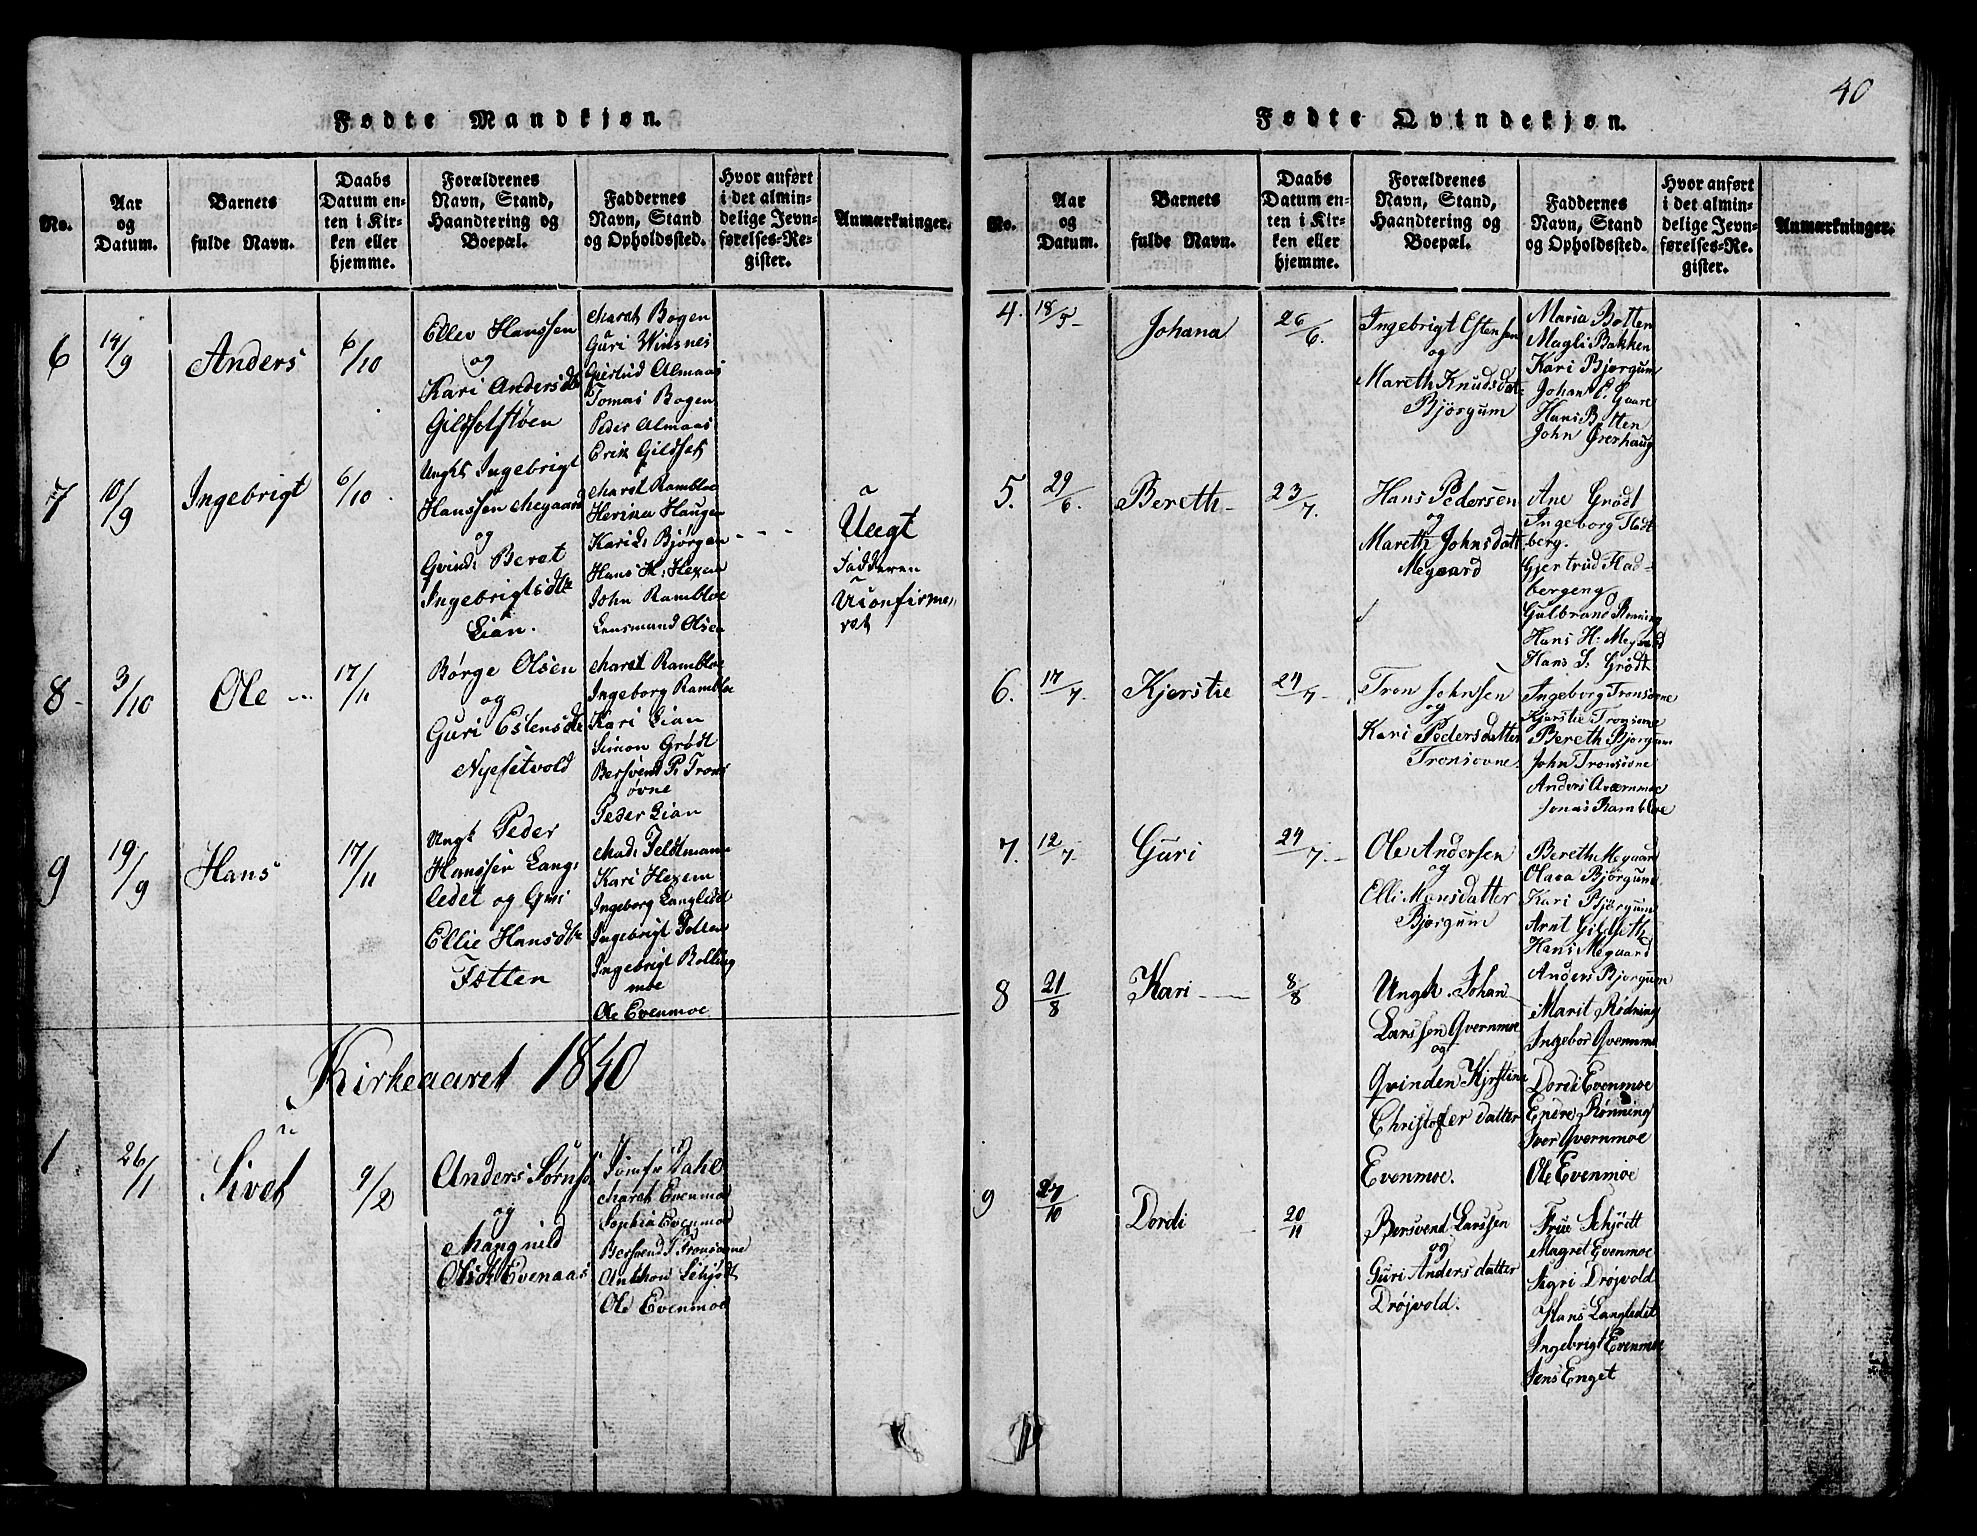 40
Fødte Mandkjøn.
No.
Aar
og
Datum.
Barnets
fulde Navn.
Daabs
Datum en-
ten i Kir-
ken eller
hjemme.
Forældrenes
Navn, Stand,
Haandtering og
Boepæl.
Faddernes
Navn, Stand
og Opholdssted.
Hvor anført
i det almin-
delige Jevn-
førelses-Re-
gister.
Anmærkninger.
6
14/9
Anders
6/10
Ellev Hanssen
og
Kari Andersdtr
Gildsetstøen
Marat Bogen
Guri Winsnes
Giertrud Almaas
Tomas Bogen
Peder Almaas
Erik Gildset
7
10/9
Ingebrigt
6/10
Ungk: Ingebrigt
Hanssen Megaard
og
Qvind: Beret
Ingebrigtsdtr
Lian.
Marit Rambloe
Herina Haugen
Kari L: Bjørgen
Hans H: Hexem
John Rambloe
Lensmand Olsen
Uegt
Fadderen
Uconfirme
ret
8
3/10
Ole
17/11
Børge Olsen
og
Guri Estensdtr
Nysetvold
Marit Rambloe
Ingeborg Rambloe
Kari Lian
Simon Grødt
Bersvend P. Trons
øvne
Peder Lian
9
19/9
Hans
17/11
Ungk Peder
Hanssen Lang
ledet og Qvi
Ellie Hansdtr
Fotten
Mad: Feldtmann
Kari Hexem
Ingeborg Langledet
Ingebrigt Fotten
Ingebrigt Rolling
moe
Ole Evenmoe
Kirkeaaret 1840
1
26/1
Sivert
9/2
Anders Sørnsen
og
Mangnild
Olsdtr Evenaas
Jomfr Dahl
Marat Evenmoe
Sophia Evenmoe
Bersvend P Tronsøvne
Anthon Schjødt
Ole Evenmoe
Fødte Qvindekjøn.
No.
Aar
og
Datum.
Barnets
fulde Navn.
Daabs
Datum en-
ten i Kir-
ken eller
hjemme.
Forældrenes
Navn, Stand,
Haandtering og
Boepæl.
Faddernes
Navn, Stand
og Opholdssted.
Hvor anført
i det almin-
delige Jevn-
førelses-Re-
gister.
Anmærkninger.
4.
18/5
Johana
26/6.
Ingebrigt Estensen
og
Mareth Knudsdatt:
Bjørgum
Maria Botten
Magli Bakken
Kari Bjørgum
Johan E. Gaare
Hans Botten
John Øverhaug
5.
29/6.
Bereth
23/7.
Hans Pedersen
og
Mareth Johnsdatt
Megaard
Ane Grødt
Ingeborg Flodt
berg.
Gjertrud Flad-
bergeng
Gulbrand Rønning
Hans H: Megaard
Hans S. Grødt
6.
17/7.
Kjerstie
24/7.
Tron Johnsen
og
Kari Pedersdatter
Tronsovne.
Ingeborg Tronsovne
Kjerstie Tronsovne
Bereth Bjørgum
John Tronsovne
Anders Qværnmoe
Jonas Rambloe
7.
12/7.
Guri
24/7.
Ole Andersen
og
Elli Monsdatter
Bjørgum
Bereth Megaard
Olava Bjørgum
Kari Bjørgum
Arnt Gildseth
Hans Megaard
Anders Bjørgum
8
21/8
Kari
8/8
Ungk. Johan
Larssen Qvernmoe
og
Qvinden Kjrstina
Christofer datter
Evenmoe.
Marit Rødning
Ingebor Qvernmo
Dordi Evenmoe
Ender Rønning
Iver Qvernmoe
Ole Evenmoe
9
27/10
Dordi
20/11
Bersvend Larssen
og
Guri Anders datter
Drøjvold.
Frue Schjødt
Magret Evenmoe
Sigri Drøjvold
Hans Langledet
Ingebrigt Evenmoe
Jens Enget